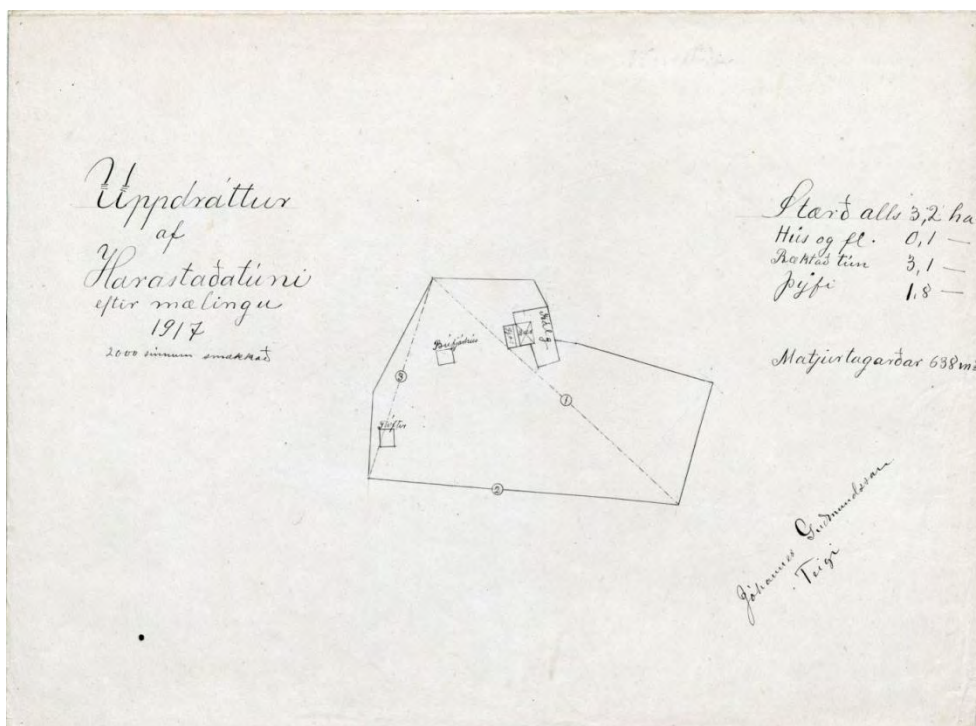 Uppdráttur
af
Harastaðatúni
eftir mælingu
1917
2000 sinnum smækkað
Stærð alls 3,2 ha
Hús og fl. 0,1 —
Ræktað tún 3,1 —
Þýfi 1,8 —
Matjurtagarðar 638 m
3
1
2
Jóhannes Guðmundsson
Teigi